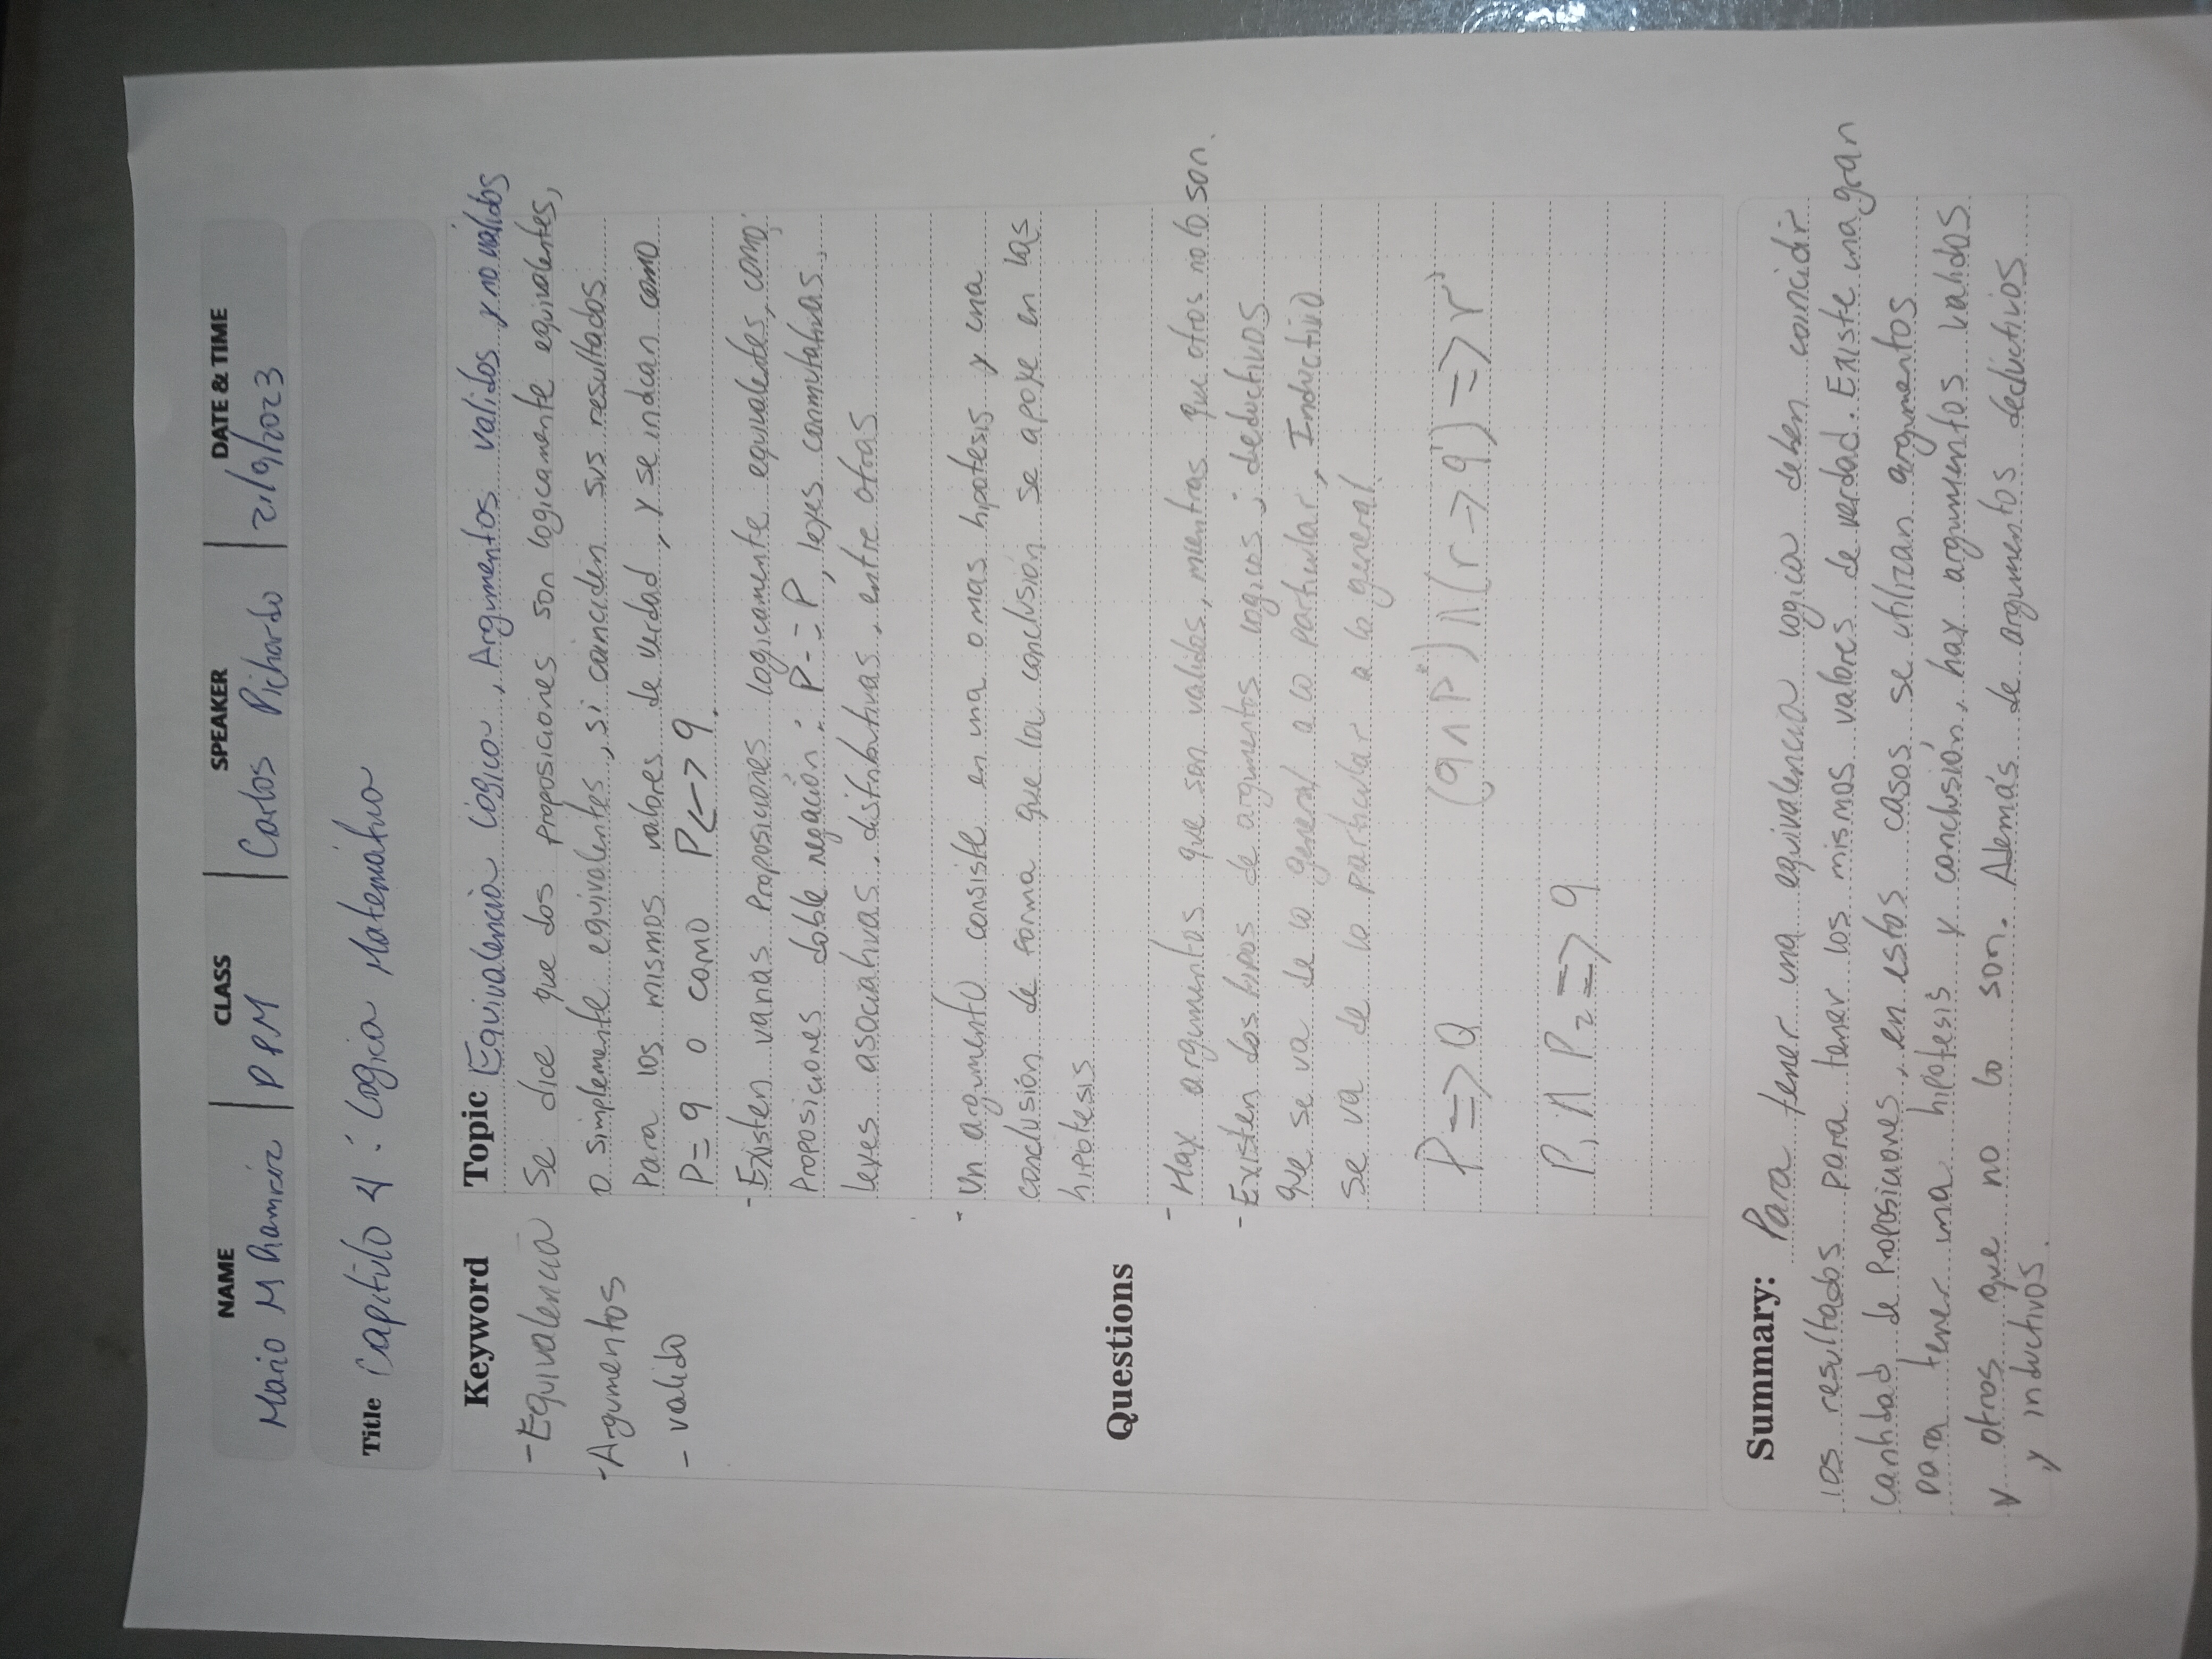 NAME CLASS SPEAKER DATE & TIME
Mario M Ramirez PPM Carlos Pichardo 21/9/2023
Title Capitulo 4: Logica Matemática
Keyword
- Equivalencia
- Argumentos
- valido
Topic Equivalencia Lógica, Argumentos validos y no válidos
Se dice que dos proposiciones son logicamente equivalentes,
o simplemente equivalentes, si coinciden sus resultados
Para los mismos valores de verdad, y se indican como
P = q o como P <-> q.
- Existen varias Proposiciones logicamente equivalentes, como:
Proposiciones doble negación: P- = P, leyes conmutativas,
leyes asociativas, distributivas, entre otras
- Un argumento consiste en una o mas hipotesis y una
conclusión de forma que la conclusión se apoye en las
hipotesis
Questions
- Hay argumentos que son validos, mientras que otros no lo son.
- Existen dos tipos de argumentos logicos; deductivos
que se va de lo general a lo particular, Inductivo
se va de lo particular a lo general.
P => Q (q ∧ P') ∧ (r -> q') => r'
P₁ ∧ P₂ => q
Summary: Para tener una equivalencia logica deben coincidir
los resultados para tener los mismos valores de verdad. Existe una gran
cantidad de Proposiciones, en estos casos se utilizan argumentos
para tener una hipótesis y conclusión, hay argumentos validos
y otros que no lo son. Además de argumentos deductivos
y inductivos.